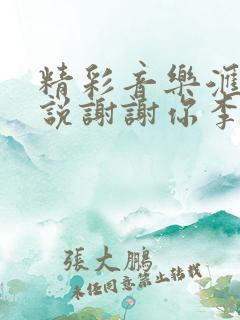 精彩音樂滙
說謝謝你李
張大鵬
未任同意禁止轉載